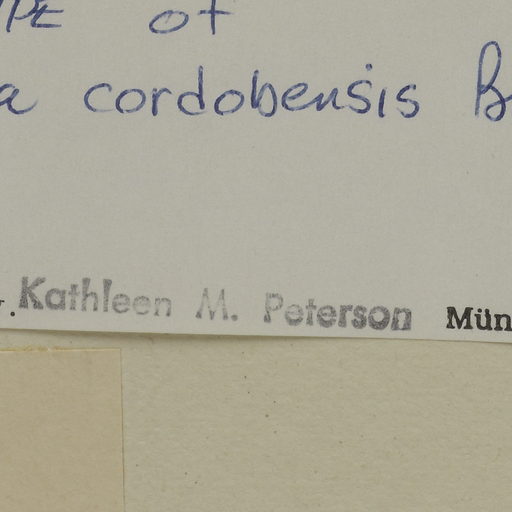 of
cordobensis
Kathleen M. Peterson Mün